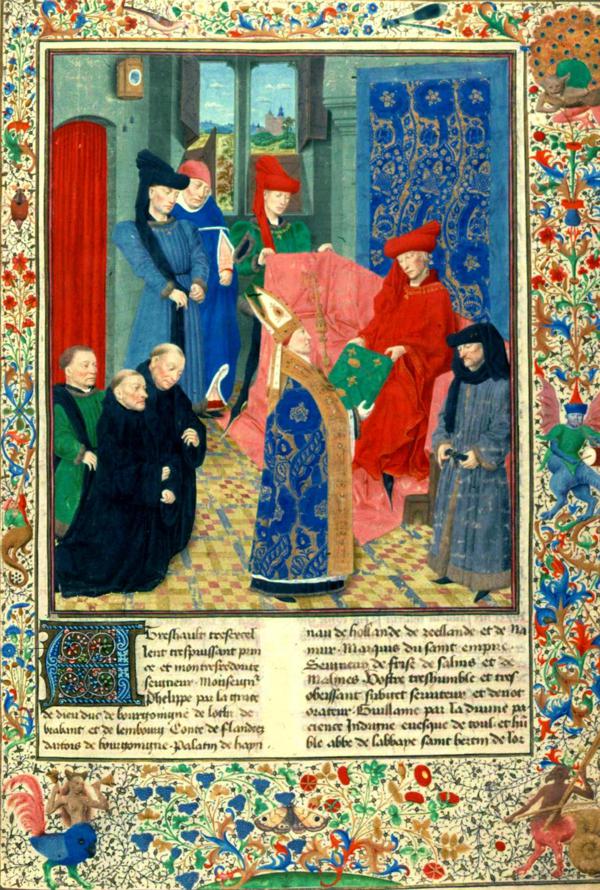 A Treshault tresexcel
lent trespuissant prin
ce et mon tresredoubte
seigneur Monseign
Phelippe par la grace
de dieu duc de bourgoingne de lothr. de
brabant et de lembourg Conte de flandres
dartois de bourgoingne Palatin de hayn
nau de hollande de zeellande et de Na
mur Marquis du saint empire
Seigneur de frise de salins et de
Malines Vostre treshumble et tres
obeissant subiect seruiteur et deuot
orateur Guillame par la diuine pa
cience Indigne euesque de toul et hu
ble abbe de labbaye saint bertin de lor